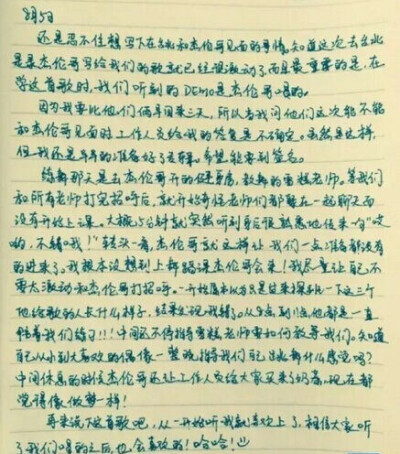 8月5日
还是忍不住想写下在台北和杰伦哥见面的事情。知道这次去台北
是录杰伦哥写给我们的歌就已经很激动了而且最重要的是，在
学这首歌时，我们听到的DEMO是杰伦哥唱的。
因为我要比他们俩早回来三天，所以当我问他们这次能不能
和杰伦哥见面时工作人员给我的答复是不确定。虽然是这样，
但我还是早早的准备好了专辑，希望能拿到签名。
练舞那天是去杰伦哥开的健身房，教舞的雪糕老师。等我们
和所有老师打完招呼后，就开始奇怪老师们都聚在一起聊天而
没有开始上课。大概5分钟就突然听到身后很熟悉地传来一句"哎
哟，不错哦！"转头一看，杰伦哥就这样让我们一点准备都没有
的进来了。我根本没想到上舞蹈课杰伦哥会来！我尽量让自己不
要太激动和杰伦哥打招呼。一开始原本以为只是过来探班一下这三个
他给歌的人长什么样子，结果发现我错了。从点到点，他都是一直
陪着我们练习！！！中间还不停指导雪糕老师要如何教导我们。知道
自己从小到大喜欢的偶像一整晚指导我们自己跳舞什么感觉吗？
中间休息的时候杰伦哥还让工作人员给大家买来了奶茶，现在都
觉得像做梦一样！
再来说下这首歌吧，从一开始听我就喜欢上了，相信大家听
了我们唱的之后，也会喜欢的！哈哈！